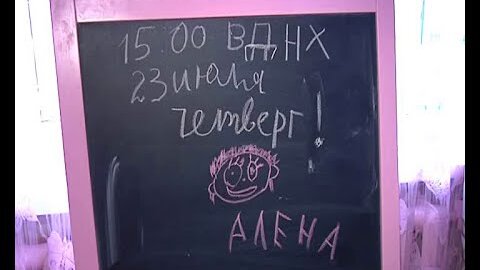 15.00 ВДНХ
23 июля
четверг!
АЛЕНА